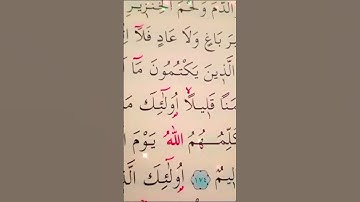 الدَّمَ وَلَحْمَ الْخِنْزِيرِ
بَاغٍ وَلَا عَادٍ فَلَا
الَّذِينَ يَكْتُمُونَ مَا
قَلِيلًا أُولَٰئِكَ مَا
اللَّهُ يَوْمَ
١٧٤ أُولَٰئِكَ